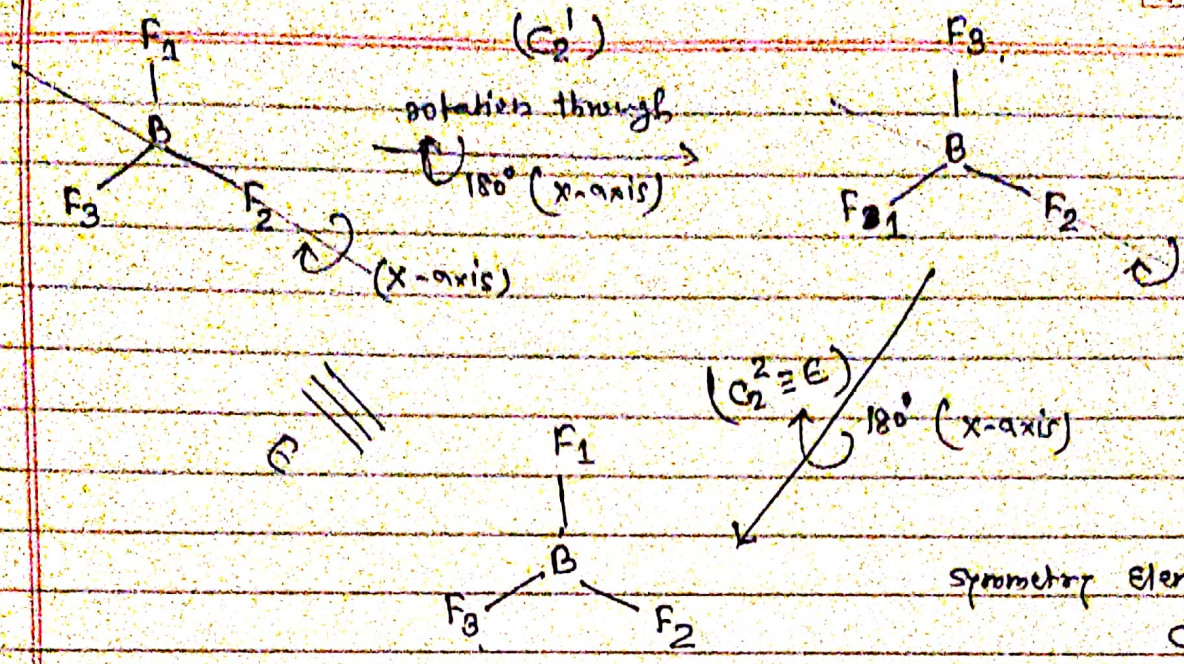 (C₂¹)
F₁
B
F₃ F₂
(x-axis)
rotation through
180° (x-axis)
F₃
B
F₁ F₂
(C₂² ≡ E)
180° (x-axis)
E
F₁
B
F₃ F₂
Symmetry Elem
C